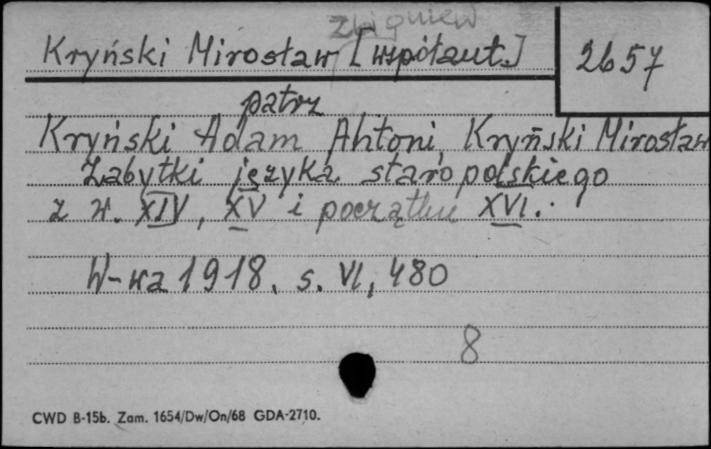 Zbigniew
Kryński Mirosław [współaut.] 2657
patrz
Kryński Adam Antoni, Kryński Mirosław
Zabytki języka staropolskiego
z w. XIV, XV i początku XVI.
W-wa 1918. s. VI, 480
8
CWD B-15b. Zam. 1654/Dw/On/68 GDA-2710.